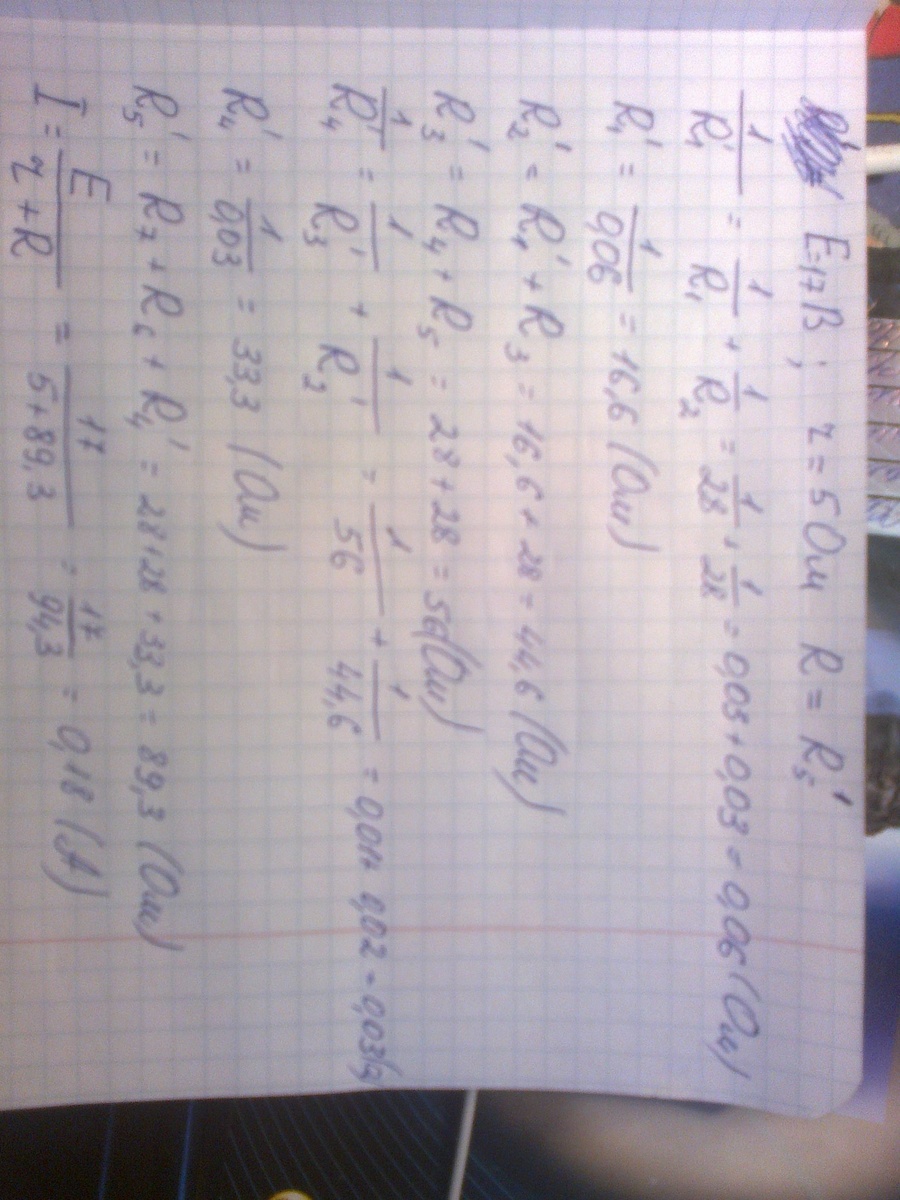 E=17В; r=5Ом R=R₅'
1/R₁' = 1/R₁ + 1/R₂ = 1/28 + 1/28 = 0,03+0,03=0,06 (Ом)
R₁' = 1/0,06 = 16,6 (Ом)
R₂' = R₁' + R₃ = 16,6+28=44,6 (Ом)
R₃' = R₄ + R₅ = 28+28=56(Ом)
1/R₄' = 1/R₃' + 1/R₂' = 1/56 + 1/44,6 = 0,01+0,02=0,03
R₄' = 1/0,03 = 33,3 (Ом)
R₅' = R₇ + R₆ + R₄' = 28+28+33,3=89,3 (Ом)
I = E/r+R = 17/5+89,3 = 17/94,3 = 0,18 (А)